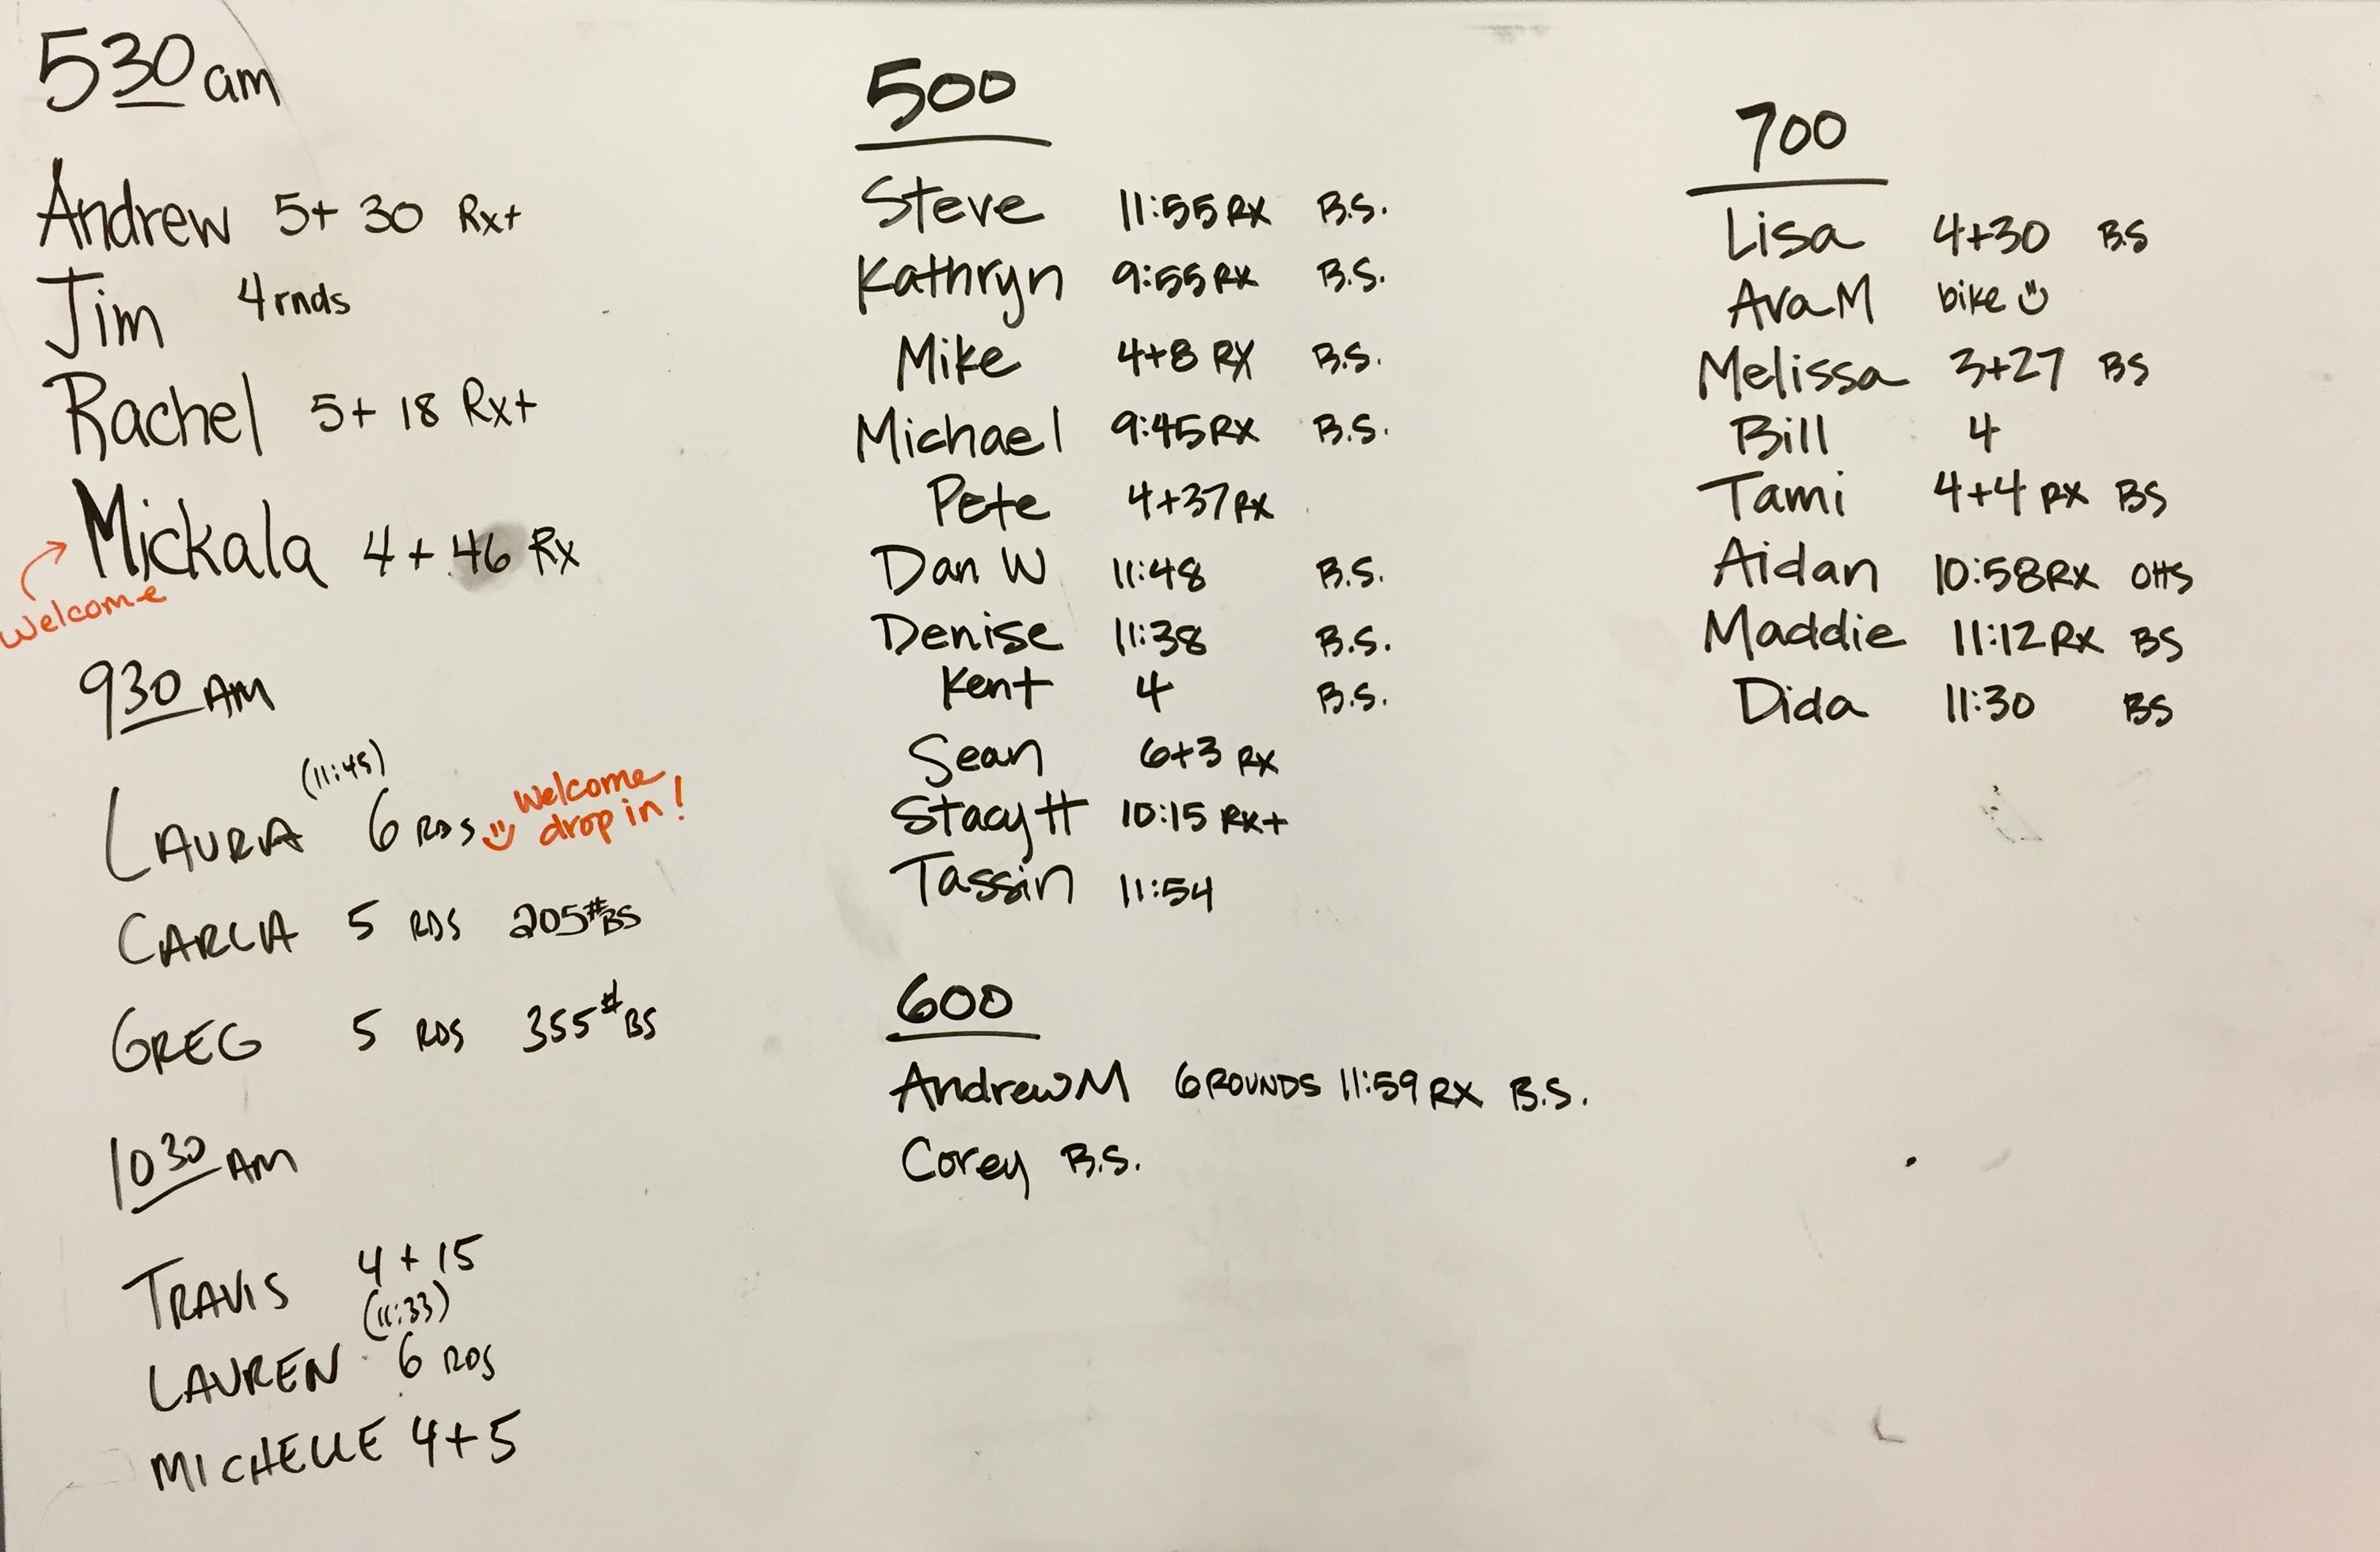 530 am
Andrew 5+ 30 Rx+
Jim 4 rnds
Rachel 5+ 18 Rx+
Mickala 4 + 46 Rx
Welcome
930 AM
(11:45)
LAURA 6 RDS Welcome
drop in!
CARLA 5 RDS 205# BS
GREG 5 RDS 355# BS
1030 AM
TRAVIS 4 + 15
(11:33)
LAUREN 6 RDS
MICHELLE 4+5
500
Steve 11:55 RX B.S.
Kathryn 9:55 RX B.S.
Mike 4+8 RX B.S.
Michael 9:45 RX B.S.
Pete 4+37 RX
Dan W 11:48 B.S.
Denise 11:38 B.S.
Kent 4 B.S.
Sean 6+3 RX
Stacy H 10:15 RX+
Tassin 11:54
600
Andrew M 6 ROUNDS 11:59 RX B.S.
Corey B.S.
700
Lisa 4+30 BS
Ava M bike
Melissa 3+27 BS
Bill 4
Tami 4+4 RX BS
Aidan 10:58 RX OHS
Maddie 11:12 RX BS
Dida 11:30 BS